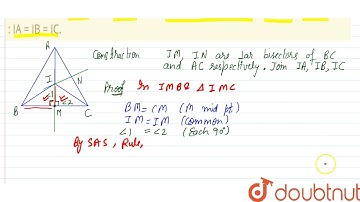 : IA = IB = IC.
Construction IM, IN are ⊥ar bisectors of BC
and AC respectively. Join IA, IB, IC
Proof In IMBQ △ IMC
BM = CM (M mid pt.)
IM = IM (Common)
∠1 = ∠2 (Each 90°)
By SAS, Rule,
A
I
N
1
2
B
M
C
doubtnut